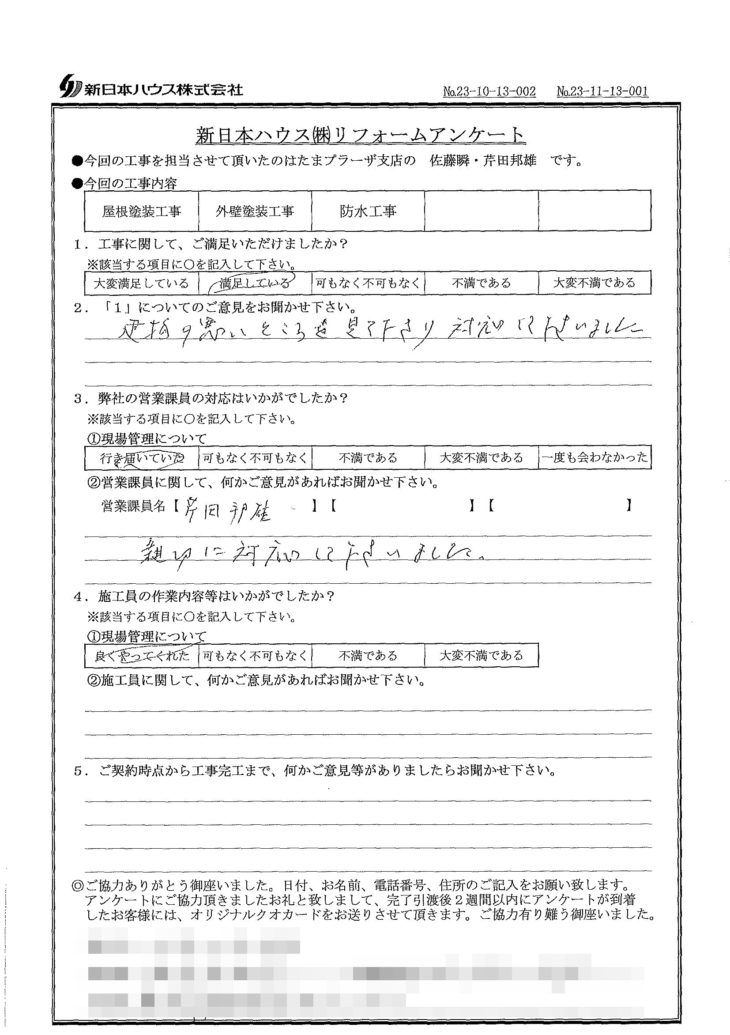 新日本ハウス株式会社 No.23-10-13-002 No.23-11-13-001
新日本ハウス㈱リフォームアンケート
●今回の工事を担当させて頂いたのはたまプラーザ支店の 佐藤瞬・芹田邦雄 です。
●今回の工事内容
屋根塗装工事 外壁塗装工事 防水工事
1．工事に関して、ご満足いただけましたか？
※該当する項目に○を記入して下さい。
大変満足している 満足している 可もなく不可もなく 不満である 大変不満である
2．「1」についてのご意見をお聞かせ下さい。
建物の悪いところを見て下さり 対応して下さいました
3．弊社の営業課員の対応はいかがでしたか？
※該当する項目に○を記入して下さい。
①現場管理について
行き届いていた 可もなく不可もなく 不満である 大変不満である 一度も会わなかった
②営業課員に関して、何かご意見があればお聞かせ下さい。
営業課員名【 芹田邦雄 】【 】【 】
親切に対応して下さいました。
4．施工員の作業内容等はいかがでしたか？
※該当する項目に○を記入して下さい。
①現場管理について
良くやってくれた 可もなく不可もなく 不満である 大変不満である
②施工員に関して、何かご意見があればお聞かせ下さい。
5．ご契約時点から工事完工まで、何かご意見等がありましたらお聞かせ下さい。
◎ご協力ありがとう御座いました。日付、お名前、電話番号、住所のご記入をお願い致します。
アンケートにご協力頂きましたお礼と致しまして、完了引渡後2週間以内にアンケートが到着
したお客様には、オリジナルクオカードをお送りさせて頂きます。ご協力有り難う御座いました。